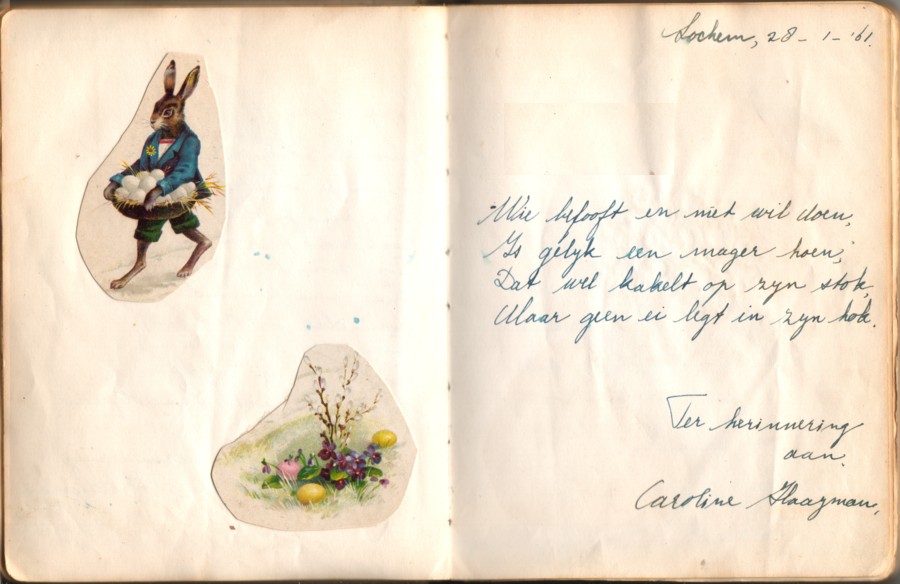 Lochem, 28 - 1 - '61.
Wie belooft en niet wil doen,
Is gelyk een mager hoen;
Dat wel kakelt op zyn stok,
Maar geen ei legt in zyn hok.
Ter herinnering
aan.
Caroline Haayman.